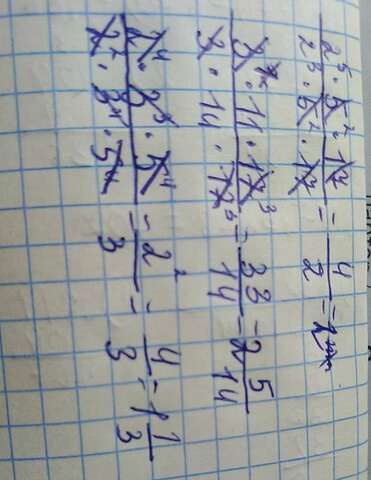 2⁵ · 5² · 17 / 2³ · 5² · 17 = 4 / 2 =
3 · 11 · 12 3 / 3 · 14 · 12 = 33 / 14 = 2 5/14
2⁴ · 3³ · 5⁴ / 2² · 3⁴ · 5⁴ = 2² / 3 = 4 / 3 = 1 1/3